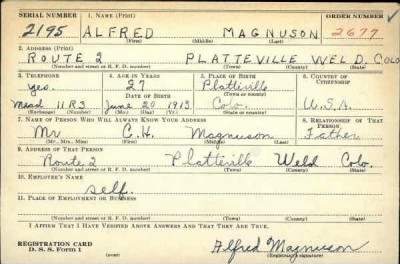 SERIAL NUMBER 1. NAME (Print) ORDER NUMBER
2195 ALFRED MAGNUSON 2677
(First) (Middle) (Last)
2. ADDRESS (Print)
ROUTE 2 PLATTEVILLE WELD. COLO
(Number and street or R. F. D. number) (Town) (County) (State)
3. TELEPHONE 4. AGE IN YEARS 5. PLACE OF BIRTH 6. COUNTRY OF CITIZENSHIP
yes. 27 Platteville
DATE OF BIRTH (Town or county)
Mead 11R3 June 20 1913 Colo. U.S.A.
(Exchange) (Number) (Mo.) (Day) (Yr.) (State or country)
7. NAME OF PERSON WHO WILL ALWAYS KNOW YOUR ADDRESS 8. RELATIONSHIP OF THAT PERSON
Mr C.H. Magnuson Father
(Mr., Mrs., Miss) (First) (Middle) (Last)
9. ADDRESS OF THAT PERSON
Route 2 Platteville Weld Colo.
(Number and street or R. F. D. number) (Town) (County) (State)
10. EMPLOYER'S NAME
self.
11. PLACE OF EMPLOYMENT OR BUSINESS
(Number and street or R. F. D. number) (Town) (County) (State)
I AFFIRM THAT I HAVE VERIFIED ABOVE ANSWERS AND THAT THEY ARE TRUE.
REGISTRATION CARD
D. S. S. Form 1 Alfred Magnuson
(Registrant's signature)